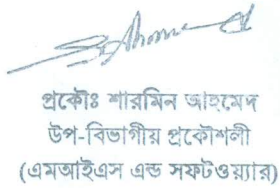 প্রকৌঃ শারমিন আহমেদ
উপ-বিভাগীয় প্রকৌশলী
(এমআইএস এন্ড সফটওয়্যার)